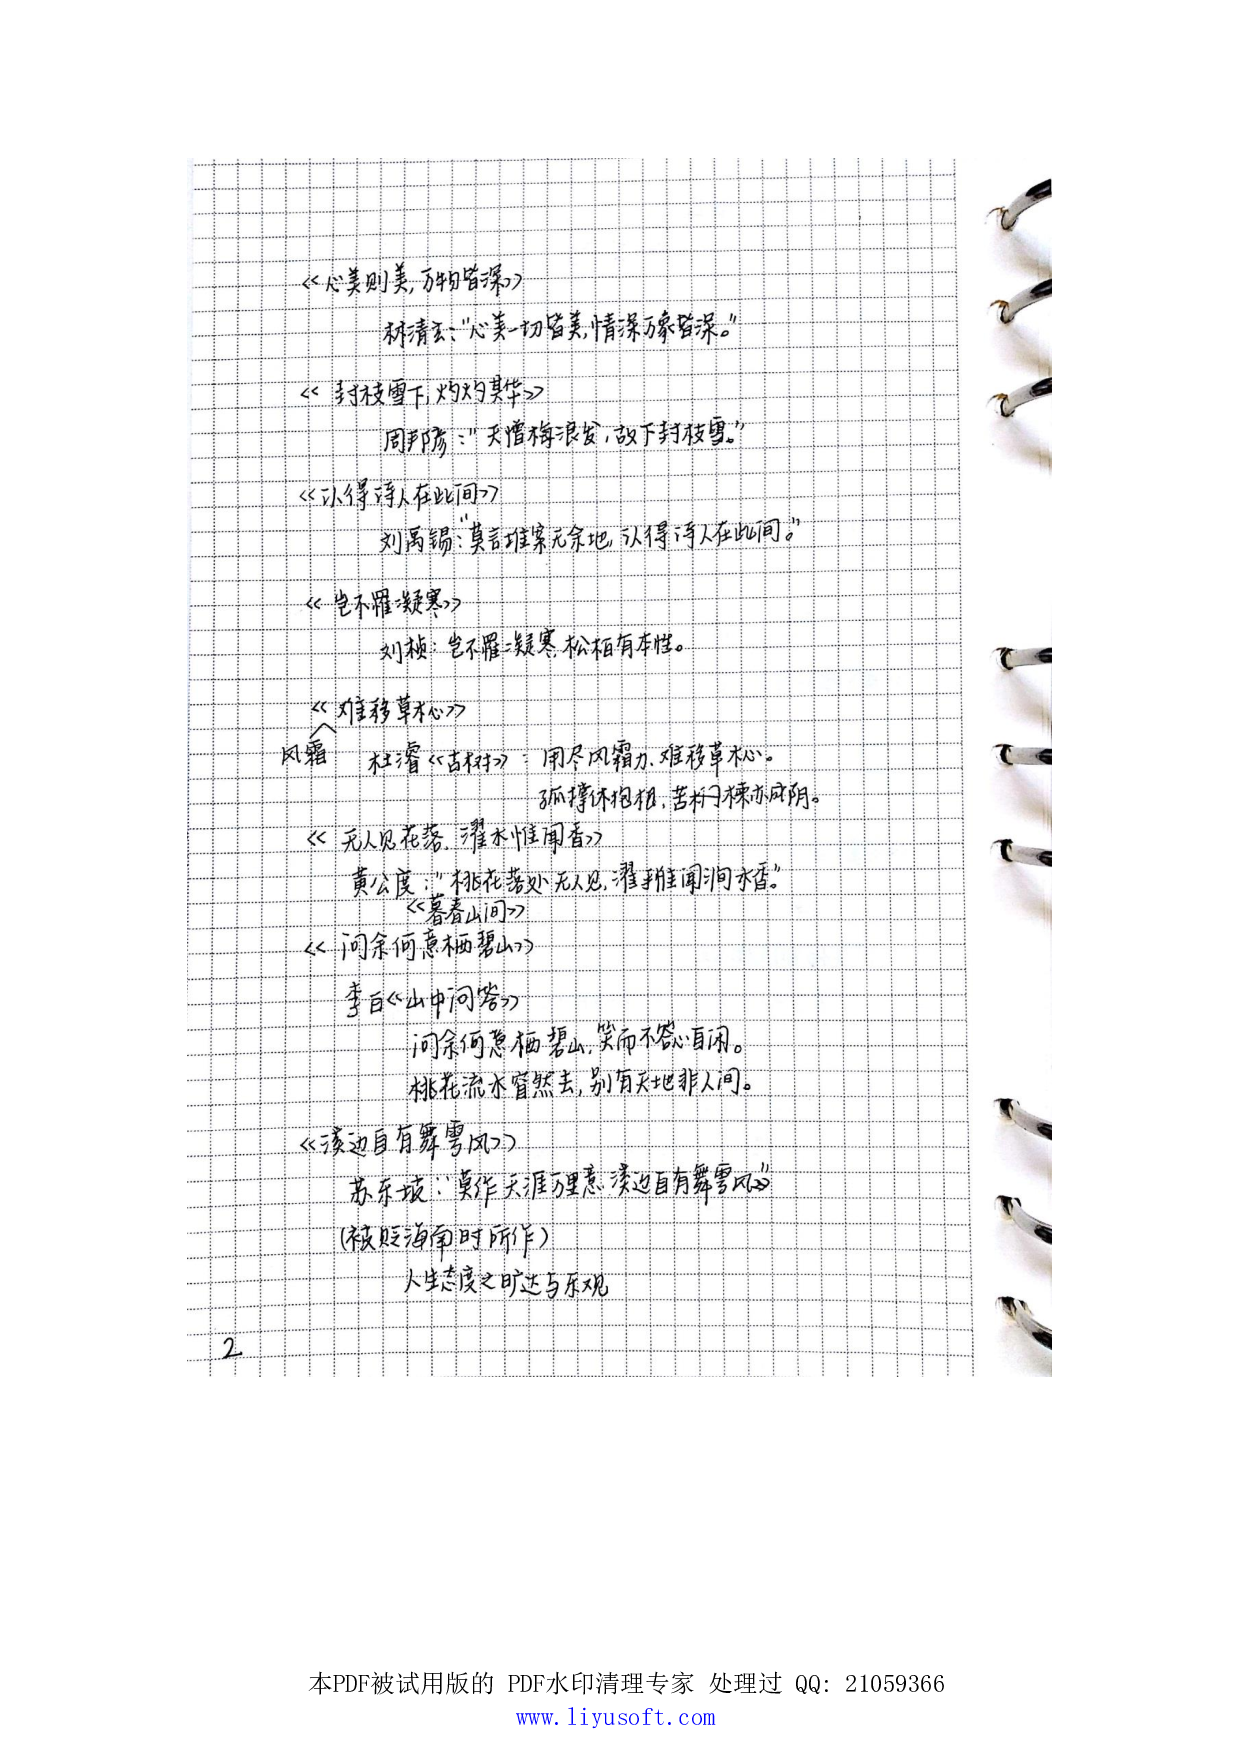 《心美则美,万物皆深》
林清玄:“心美一切皆美,情深万象皆深。”
《封枝雪下,灼灼其华》
周邦彦:“天憎梅浪发,故下封枝雪。”
《认得诗人在此间》
刘禹锡:“莫言堆案无余地,认得诗人在此间。”
《岂不罹凝寒》
刘桢:岂不罹凝寒,松柏有本性。
《难移草木心》
风霜
杜濬《古树》:用尽风霜力,难移草木心。
孤撑休抱相,苦楝亦成阴。
《无人见花落,濯水惟闻香》
黄公度:“桃花落处无人见,濯手惟闻涧水香。”
《暮春山间》
《问余何意栖碧山》
李白《山中问答》
问余何意栖碧山,笑而不答心自闲。
桃花流水窅然去,别有天地非人间。
《溪边自有舞雩风》
苏东坡:“莫作天涯万里意,溪边自有舞雩风》”
(被贬海南时所作)
人生态度之旷达与乐观
2
本PDF被试用版的 PDF水印清理专家 处理过 QQ: 21059366
www.liyusoft.com